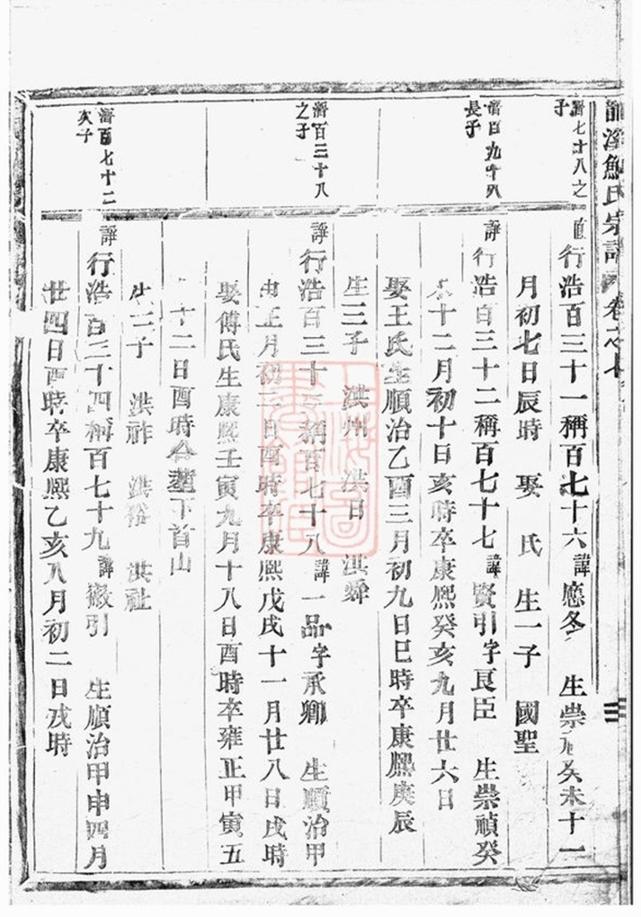 氏宗譜 卷之七
三
濟七十八之子
濟百九十八長子
濟百三十八之子
濟百七十二次子
行浩百三十一稱百七十六諱應冬 生崇禎癸未十一
月初七日辰時 娶 氏 生一子 國聖
諱行浩百三十二稱百七十七諱賢引字良臣 生崇禎癸
十二月初十日亥時卒康熙癸亥九月廿六日
娶王氏生順治乙酉三月初九日巳時卒康熙庚辰
生三子 洪州 洪日 洪舜
諱行浩百三十 稱百七十八諱一品字承卿 生順治甲
申正月初三日酉時卒康熙戊戌十一月廿八日戌時
娶傅氏生康熙壬寅九月十八日酉時卒雍正甲寅五
十二日酉時合塟下首山
生三子 洪祚 洪裕 洪祉
諱行浩百三十四稱百七十九諱 引 生順治甲申四月
廿四日酉時卒康熙乙亥八月初二日戌時